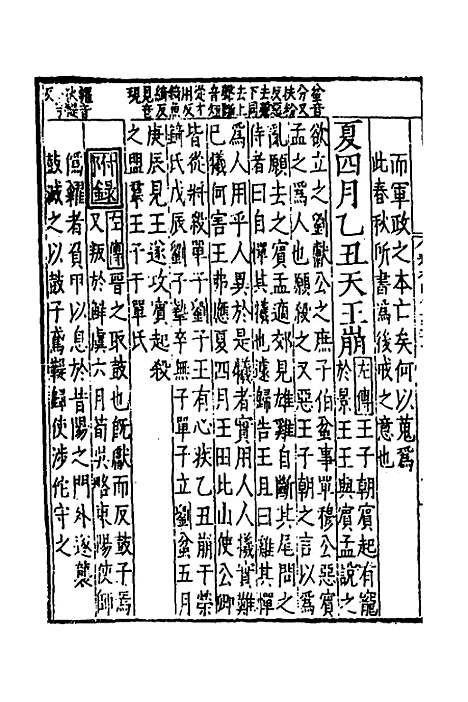 蚠音
分又
扶粉
反惡
去聲
下同
去上
聲斷
音短
從才
用反
錡魚
綺反
見音
現
糴音
狄鞮
而軍政之本亡矣何以蒐為
此春秋所書為後戒之意也
夏四月乙丑天王崩
左傳王子朝賓起有寵
於景王王與賓孟說之
欲立之劉獻公之庶子伯蚠事單穆公惡賓
孟之為人也願殺之又惡王子朝之言以為
亂願去之賓孟適郊見雄雞自斷其尾問之
侍者曰自憚其犧也遽歸告王且曰雞其憚
為人用乎人異於是犧者實用人人犧實難
已犧何害王弗應夏四月王田北山使公卿
皆從將殺單子劉子王有心疾乙丑崩于榮
錡氏戊辰劉子摯卒無子單子立劉蚠五月
庚辰見王遂攻賓起殺
之盟羣王子于單氏
附録
左傳晉之取鼓也既獻而反鼓子焉
又叛於鮮虞六月荀吳略東陽使師
偽糴者負甲以息於昔陽之門外遂襲
鼓滅之以鼓子鳶鞮歸使涉佗守之